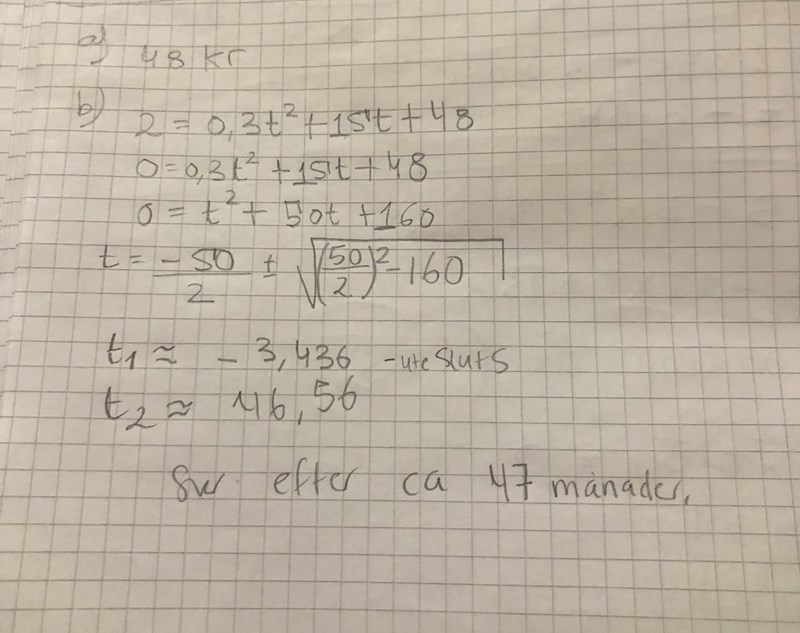 a) 48 kr
b) 2 = 0,3t² + 15t + 48
0 = 0,3t² + 15t + 48
0 = t² + 50t + 160
t = -50/2 ± √((50/2)² - 160)
t₁ ≈ - 3,436 - utesluts
t₂ ≈ 46,56
Svr efter ca 47 månader.